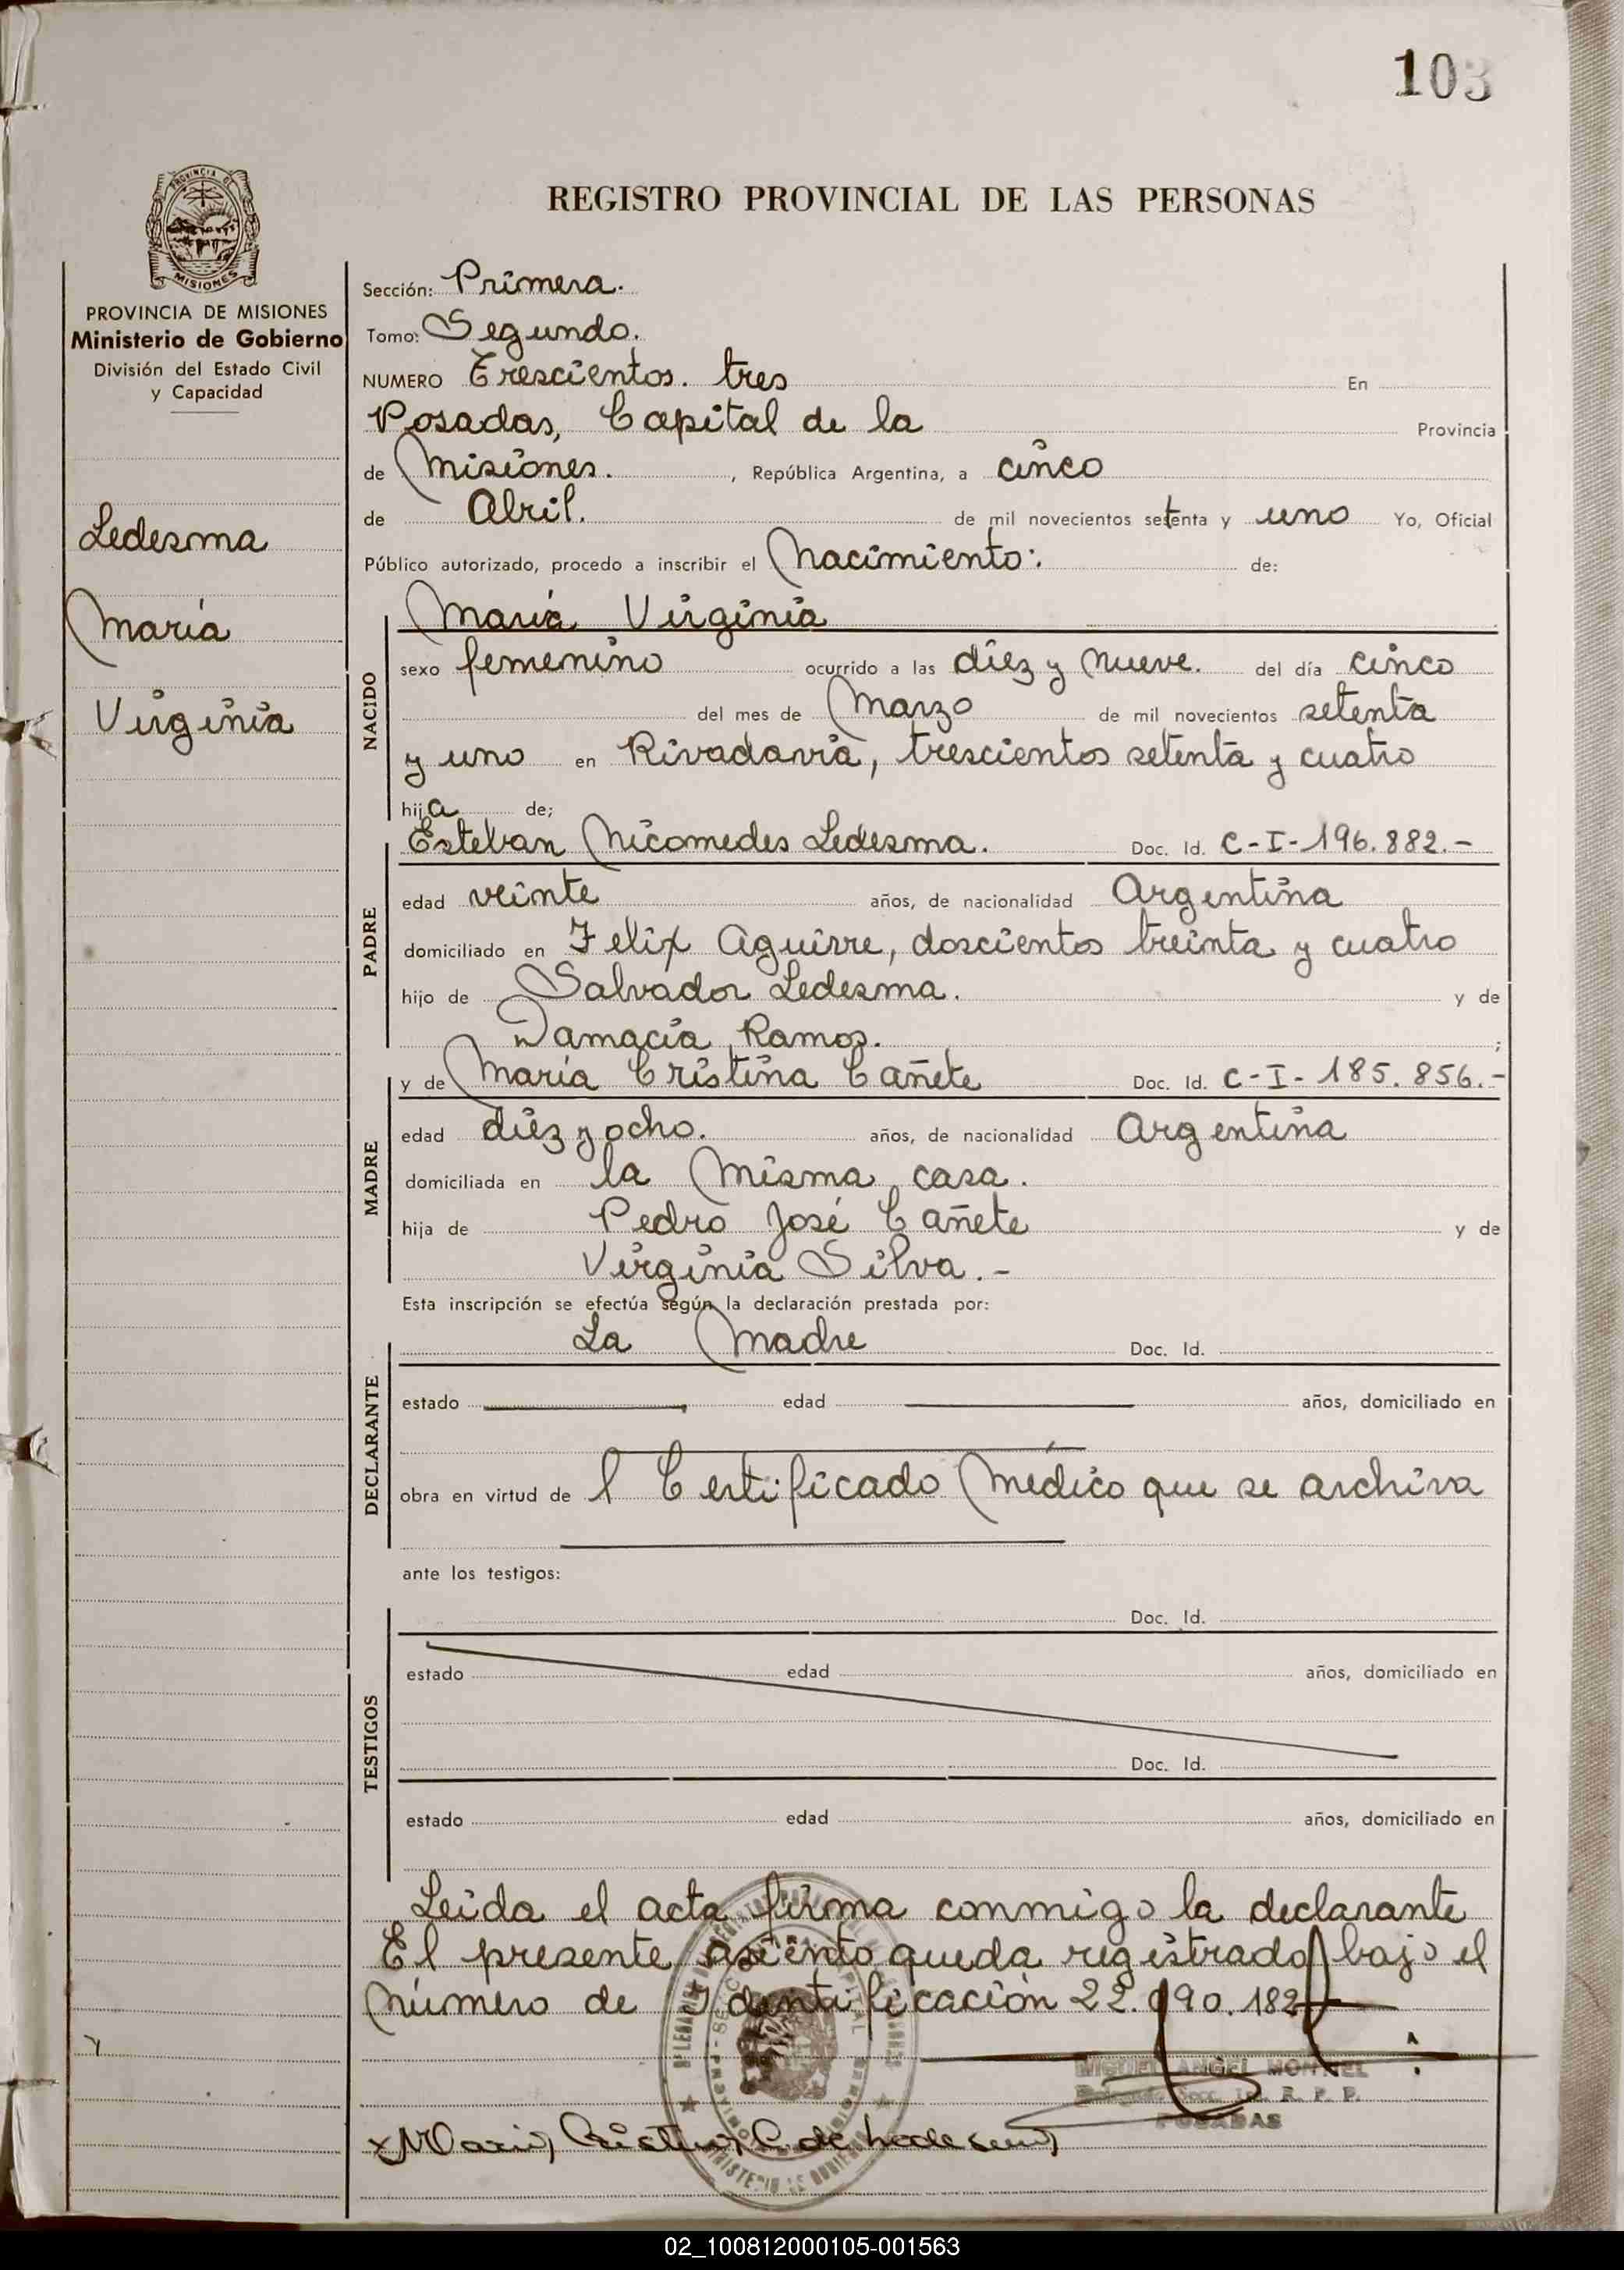 103
PROVINCIA DE
MISIONES
REGISTRO PROVINCIAL DE LAS PERSONAS
PROVINCIA DE MISIONES
Ministerio de Gobierno
División del Estado Civil
y Capacidad
Ledesma
María
Virginia
Sección: Primera.
Tomo: Segundo.
NUMERO Trescientos. tres En
Posadas, Capital de la Provincia
de Misiones. , República Argentina, a cinco
de Abril. de mil novecientos setenta y uno Yo, Oficial
Público autorizado, procedo a inscribir el Nacimiento: de:
NACIDO
María Virginia
sexo femenino ocurrido a las diez y nueve. del día cinco
del mes de Marzo de mil novecientos setenta
y uno en Rivadavia, trescientos setenta y cuatro
hija de;
PADRE
Esteban Nicomedes Ledesma. Doc. Id. C-I-196.882.-
edad veinte años, de nacionalidad Argentina
domiciliado en Felix Aguirre, doscientos treinta y cuatro
hijo de Salvador Ledesma. y de
Damacia Ramos. ;
MADRE
y de María Cristina Cañete Doc. Id. C-I-185.856.-
edad diez y ocho. años, de nacionalidad Argentina
domiciliada en la Misma casa.
hija de Pedro José Cañete y de
Virginia Silva.-
Esta inscripción se efectúa según la declaración prestada por:
DECLARANTE
La Madre Doc. Id.
estado edad años, domiciliado en
obra en virtud de l Certificado Médico que se archiva
ante los testigos:
TESTIGOS
Doc. Id.
estado edad años, domiciliado en
Doc. Id.
estado edad años, domiciliado en
Leida el acta firma conmigo la declarante
El presente asiento queda registrado bajo el
Número de Identificación 22.090.182
MIGUEL ANGEL
R. P. P.
POSADAS
x Maria Cristina C. de Ledesma
02_100812000105-001563